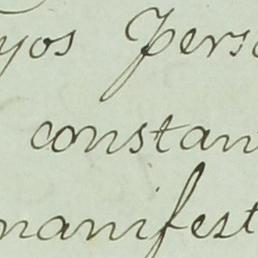 yos Pers
constan
manifest